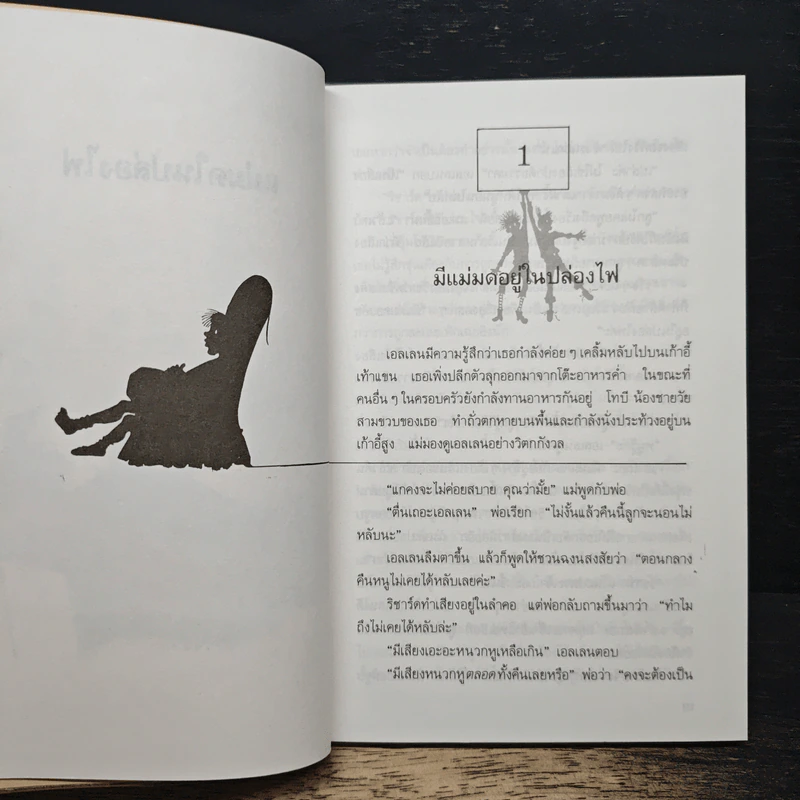 1
มีแม่มดอยู่ในปล่องไฟ
เอลเลนมีความรู้สึกว่าเธอกำลังค่อย ๆ เคลิ้มหลับไปบนเก้าอี้
เท้าแขน เธอเพิ่งปลีกตัวลุกออกมาจากโต๊ะอาหารค่ำ ในขณะที่
คนอื่น ๆ ในครอบครัวยังกำลังทานอาหารกันอยู่ โทบี น้องชายวัย
สามขวบของเธอ ทำถั่วตกหายบนพื้นและกำลังนั่งประท้วงอยู่บน
เก้าอี้สูง แม่มองดูเอลเลนอย่างวิตกกังวล
“แกคงจะไม่ค่อยสบาย คุณว่ามั้ย” แม่พูดกับพ่อ
“ตื่นเถอะเอลเลน” พ่อเรียก “ไม่งั้นแล้วคืนนี้ลูกจะนอนไม่
หลับนะ”
เอลเลนลืมตาขึ้น แล้วก็พูดให้ชวนฉงนสงสัยว่า “ตอนกลาง
คืนหนูไม่เคยได้หลับเลยค่ะ”
ริชาร์ดทำเสียงอยู่ในลำคอ แต่พ่อกลับถามขึ้นมาว่า “ทำไม
ถึงไม่เคยได้หลับล่ะ”
“มีเสียงเอะอะหนวกหูเหลือเกิน” เอลเลนตอบ
“มีเสียงหนวกหูตลอดทั้งคืนเลยหรือ” พ่อว่า “คงจะต้องเป็น